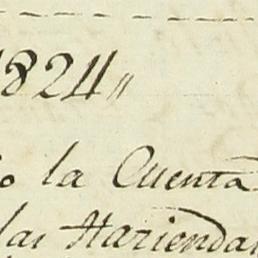 1824,,
o la Cuenta
las Haciendas